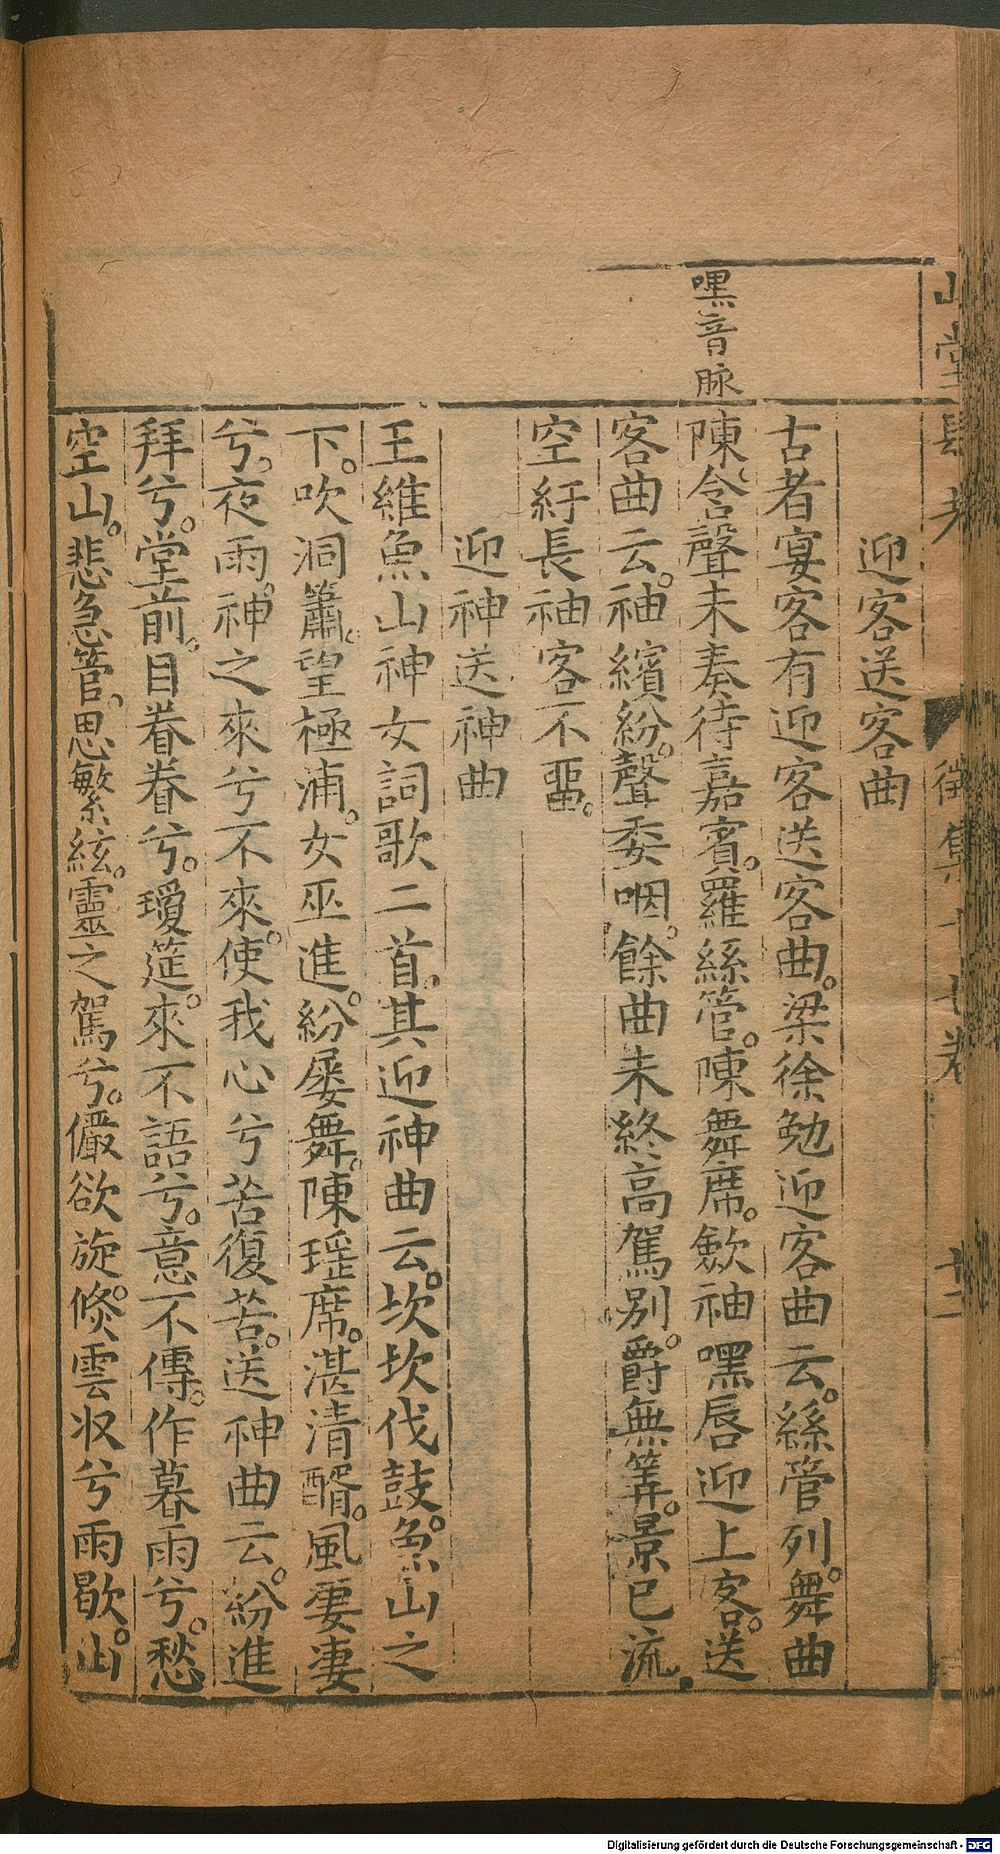 迎客送客曲
古者宴客有迎客送客曲。梁徐勉迎客曲云。絲管列。舞曲
陳。含聲未奏待嘉賓。羅絲管。陳舞席。歛袖嘿唇迎上客。送
客曲云。袖繽紛。聲委咽。餘曲未終高駕別。爵無筭。景巳流。
空紆長袖客不畱。
迎神送神曲
王維魚山神女詞歌二首。其迎神曲云。坎坎伐鼓。魚山之
下。吹洞簫。望極浦。女巫進。紛屡舞。陳瑶席。湛清醑。風凄凄
兮。夜雨。神之來兮不來。使我心兮苦復苦。送神曲云。紛進
拜兮。堂前。目眷眷兮。瓊筵。來不語兮。意不傳。作暮雨兮。愁
空山。悲急管。思繁絃。靈之駕兮。儼欲旋。倐雲収兮雨歇。山
嘿音脉
山堂肆考
徵集
十二
Digitalisierung gefördert durch die Deutsche Forschungsgemeinschaft - DFG